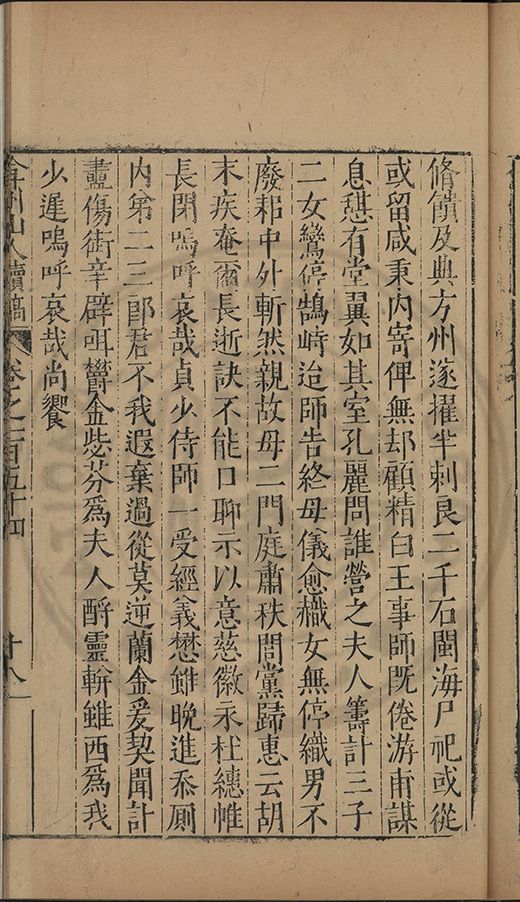 脩饋及典方州遂擢半刺良二千石閩海尸祀或從
或留咸秉内寄俾無却顧精白王事師既倦游甫謀
息憇有堂翼如其室孔麗問誰營之夫人籌計三子
二女鸞停鵠峙迨師告終母儀愈熾女無停織男不
廢耜中外斬然親故毋二門庭肅秩閭黨歸惠云胡
末疾奄爾長逝訣不能口聊示以意慈徽永杜繐帷
長閉嗚呼哀哉貞少侍師一受經義懋雖晚進忝厠
内第二三郎君不我遐棄過從莫逆蘭金爰契聞計
衋傷銜辛辟咡欝金苾芬爲夫人酹靈輧雖西爲我
少遲嗚呼哀哉尚饗
弇州山人續稿 卷之一百五十四 十八